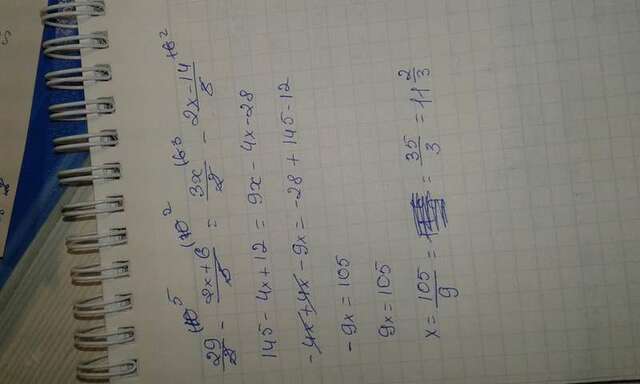 29/2 (10 5 - 2x+6/5 (10 2 = 3x/2 (6 3 - 2x-14/3 (6 2
145 - 4x + 12 = 9x - 4x - 28
- 4x + 4x - 9x = -28 + 145 - 12
- 9x = 105
9x = 105
x = 105/9 = = 35/3 = 11 2/3